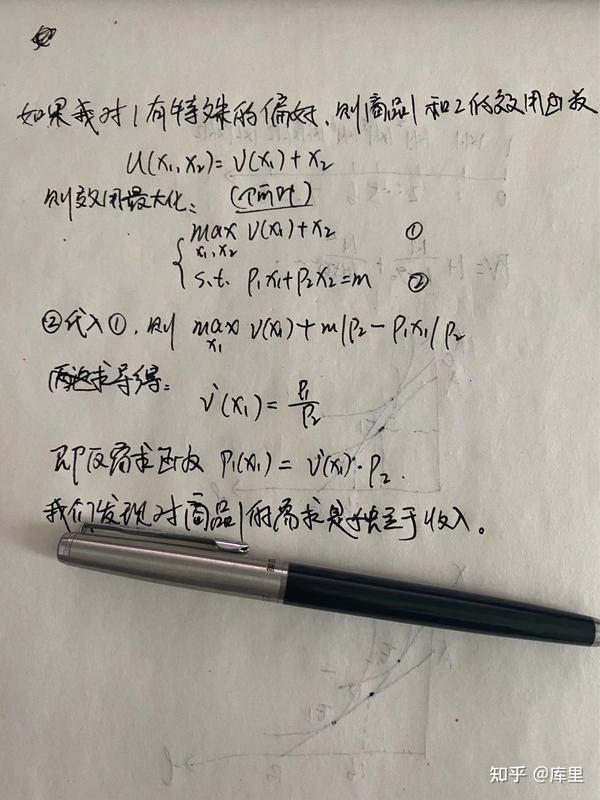 如果我对1有特殊的偏好,则商品1和2的效用函数
U(x₁,x₂)=v(x₁)+x₂
则效用最大化: (
max v(x₁)+x₂ ①
x₁,x₂
s.t. p₁x₁+p₂x₂=m ②
②代入①,则 max v(x₁)+m/p₂-p₁x₁/p₂
x₁
两边求导得:
v'(x₁)=p₁/p₂
即反需求函数 p₁(x₁)=v'(x₁)·p₂.
我们发现对商品1的需求是独立于收入。
知乎 @库里